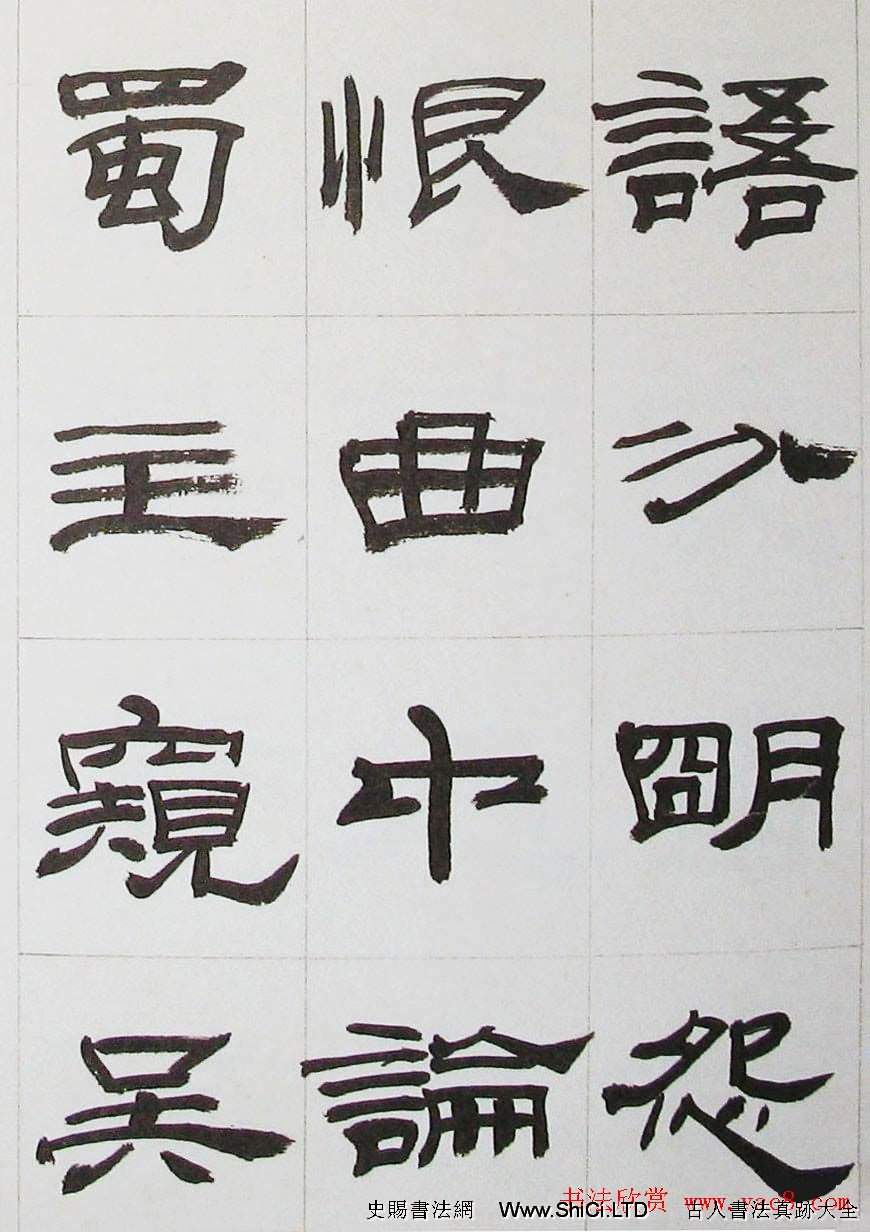 語分明怨
恨曲中論
蜀主窺吳
书法欣赏 www.yac8.com
史賜書法網 Www.ShiCi.LTD 古人書法真跡大全